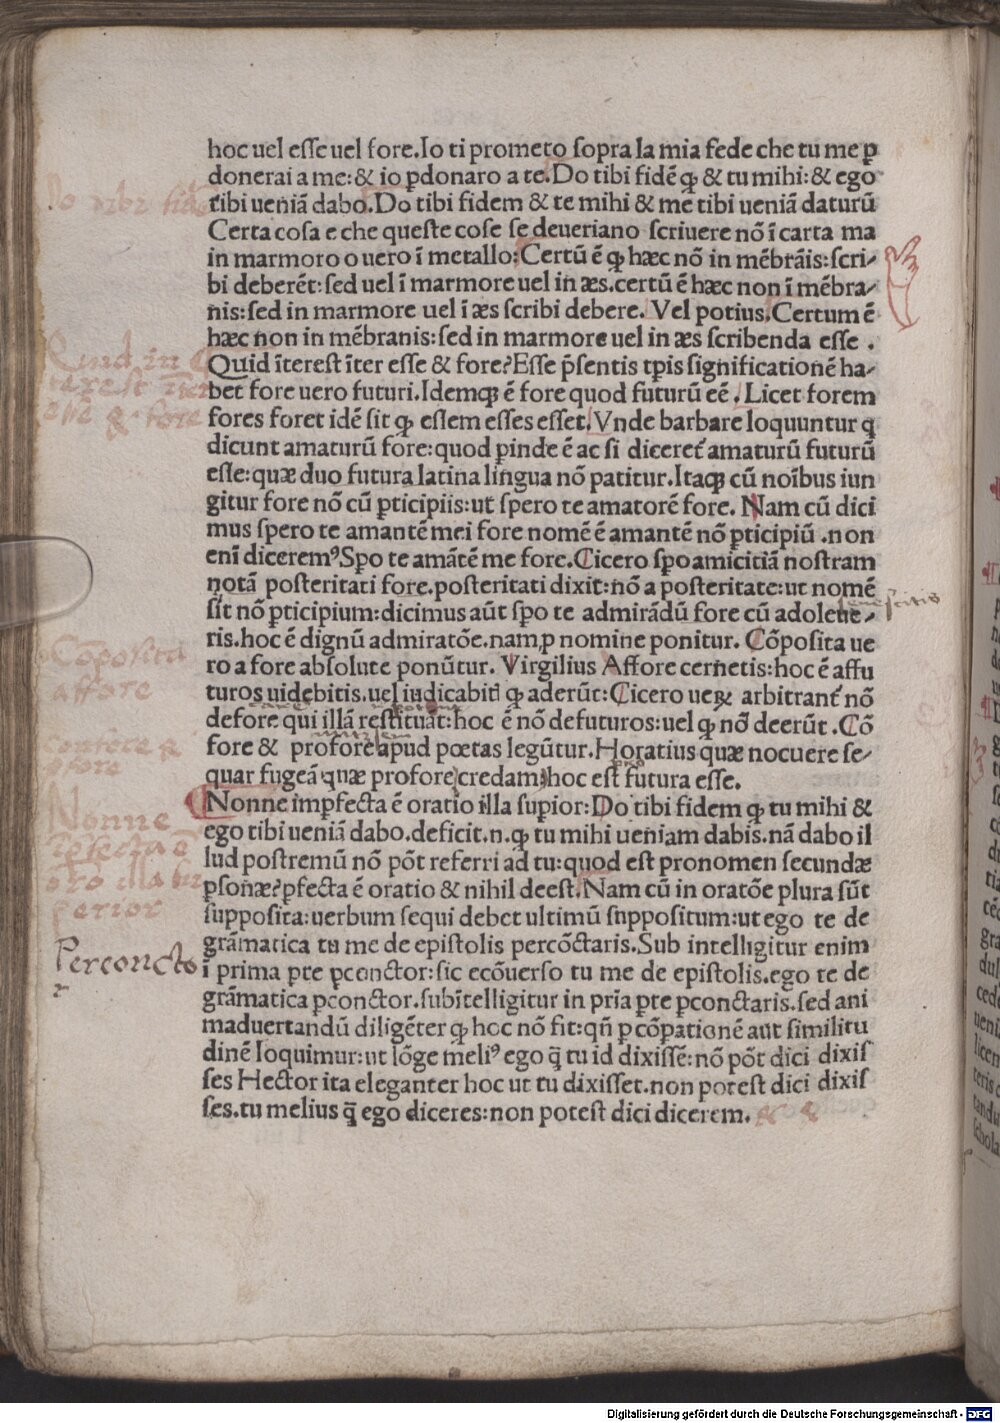 hoc uel esse uel fore.Io ti prometo sopra la mia fede che tu me ꝑ
donerai a me:& io ꝑdonaro a te.Do tibi fidē ꝙ & tu mihi:& ego
tibi ueniā dabo.Do tibi fidem & te mihi & me tibi ueniā daturū
Certa cosa e che queste cose se deueriano scriuere nō ī carta ma
in marmoro o uero ī metallo:Certū ē ꝙ hæc nō in mēbrāis:scri-
bi deberēt:sed uel ī marmore uel in æs.certū ē hæc non ī mēbra-
nis:sed in marmore uel ī æs scribi debere. Vel potius.Certum ē
hæc non in mēbranis:sed in marmore uel in æs scribenda esse .
Quid īterest īter esse & fore?Esse p̄sentis tꝑis significationē ha-
bet fore uero futuri.Idemqꝫ ē fore quod futurū eē .Licet forem
fores foret idē sit ꝙ essem esses esset.Vnde barbare loquuntur q
dicunt amaturū fore:quod ꝑinde ē ac si diceret᷑ amaturū futurū
esse:quæ duo futura latina lingua nō patitur.Itaqꝫ cū noībus iun
gitur fore nō cū ꝑticipiis:ut spero te amatorē fore. Nam cū dici
mus spero te amantē mei fore nomē ē amantē nō ꝑticipiū .non
enī diceremꝰ.Spo te amātē me fore.Cicero sꝑo amicitiā nostram
notā posteritati fore.posteritati dixit:nō a posteritate:ut nomē
sit nō ꝑticipium:dicimus aūt sꝑo te admirādū fore cū adoleue-
ris.hoc ē dignū admiratōe.nam ꝓ nomine ponitur. Cōposita ue
ro a fore absolute ponūtur. Virgilius Affore cernetis:hoc ē affu
turos uidebitis.uel iudicabiti ꝙ aderūt:Cicero ueꝝ arbitrant᷑ nō
defore qui illā restituāt:hoc ē nō defuturos:uel ꝙ nō deerūt .Cō
fore & profore apud poetas legūtur.Horatius quæ nocuere se-
quar fugeā quæ profore credam:hoc est futura esse.
Nonne imꝑfecta ē oratio illa suꝑior:Do tibi fidem ꝙ tu mihi &
ego tibi ueniā dabo.deficit.n.ꝙ tu mihi ueniam dabis.nā dabo il
lud postremū nō pōt referri ad tu:quod est pronomen secundæ
ꝑsonæ?ꝑfecta ē oratio & nihil deest.Nam cū in oratōe plura sūt
supposita:uerbum sequi debet ultimū suppositum:ut ego te de
grāmatica tu me de epistolis percōctaris.Sub intelligitur enim
ī prima ꝑte ꝑconctor:sic ecōuerso tu me de epistolis.ego te de
grāmatica ꝑconctor.subītelligitur in prīa ꝑte ꝑconctaris.sed ani
maduertandū diligēter ꝙ hoc nō fit:qn̄ ꝑ cōpationē aut similitu
dinē loquimur:ut lōge meliꝰ ego q̄ tu id dixissē:nō pōt dici dixis
ses Hector ita eleganter hoc ut tu dixisset.non potest dici dixis
ses.tu melius q̄ ego diceres:non potest dici dicerem.
Do tibi fidē
Quid in
terest īter
esse & fore
Cōposita
affore
confore &
ꝓfore
Nonne
īꝑfecta ē
oro illa su
perior
Perconcto
r
Digitalisierung gefördert durch die Deutsche Forschungsgemeinschaft - DFG